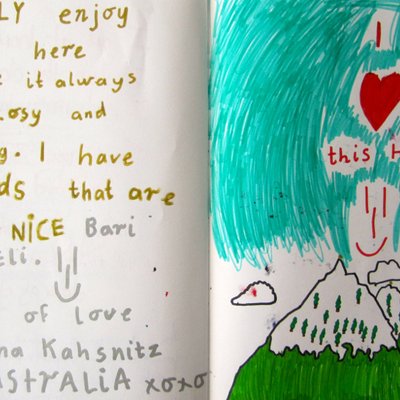 LY enjoy
here
it always
osy and
g. I have
ds that are
NiCE Bari
of love
na Kahsnitz
USTRALiA xoxo
I
this H